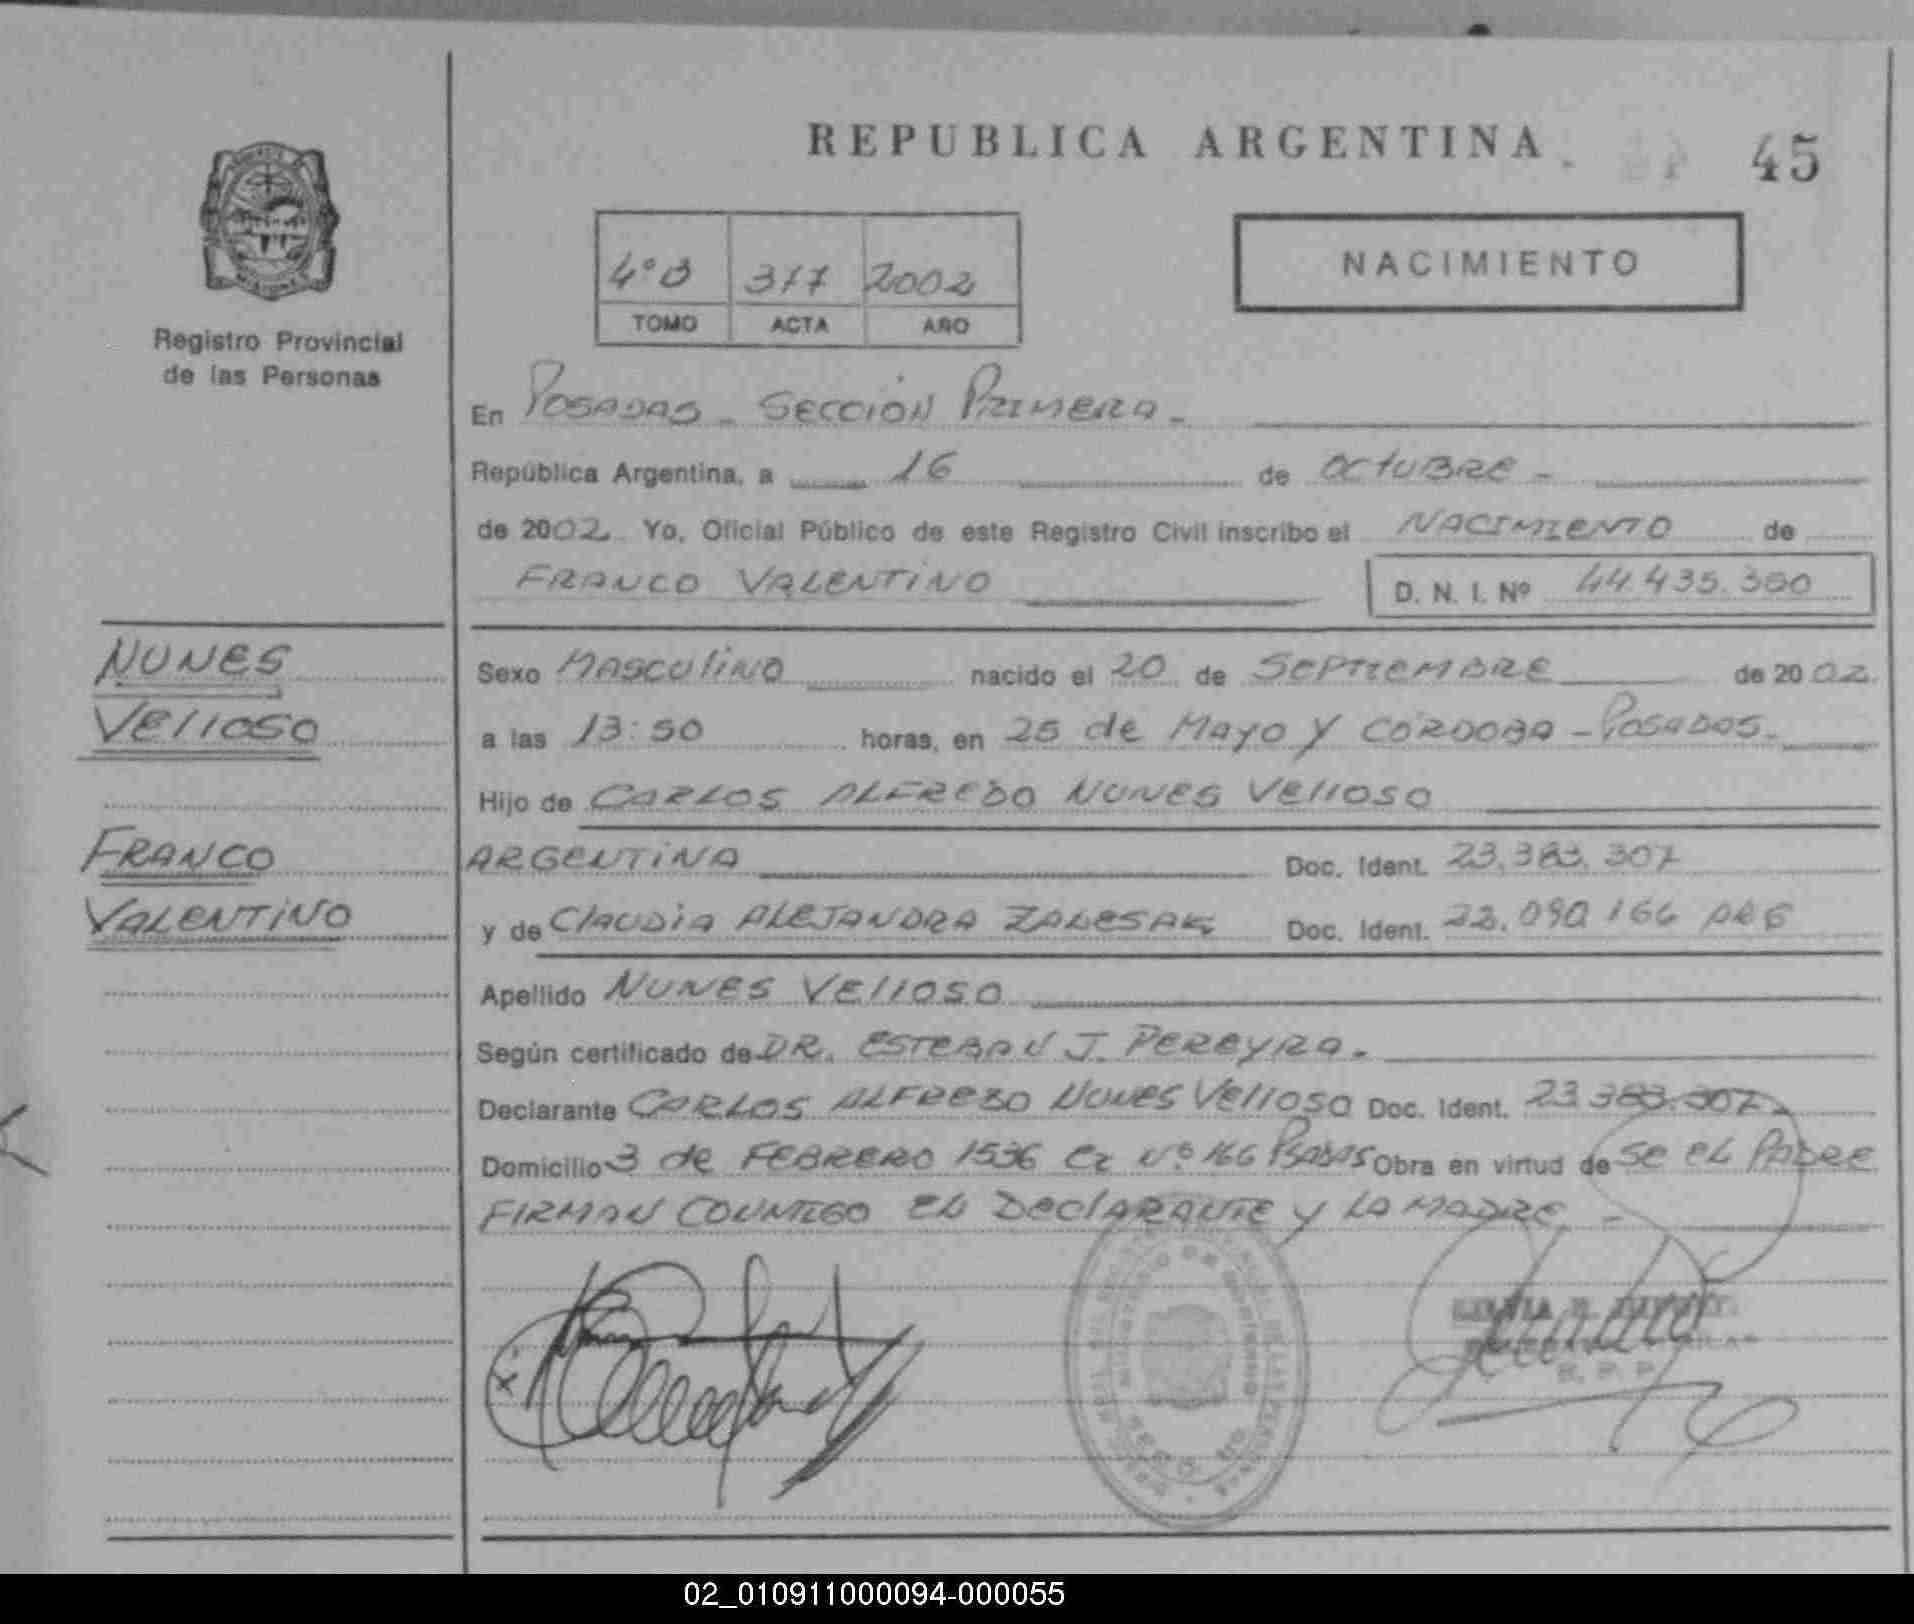 REPUBLICA ARGENTINA
45
NACIMIENTO
4º B 317 2002
TOMO ACTA AÑO
Registro Provincial
de las Personas
En POSADAS - SECCIÓN PRIMERA -
República Argentina, a 16 de OCTUBRE -
de 2002 Yo, Oficial Público de este Registro Civil inscribo el NACIMIENTO de
FRANCO VALENTINO D. N. I. Nº 44.435.350
NUNES
VELLOSO
FRANCO
VALENTINO
Sexo MASCULINO nacido el 20 de SEPTIEMBRE de 2002
a las 13:50 horas, en 25 de MAYO Y CÓRDOBA - POSADAS -
Hijo de CARLOS ALFREDO NUNES VELLOSO
ARGENTINA Doc. Ident. 23.383.307
y de CLAUDIA ALEJANDRA ZALESAK Doc. Ident. 22.090.166 ARG
Apellido NUNES VELLOSO
Según certificado de DR. ESTEBAN J. PEREYRA.
Declarante CARLOS ALFREDO NUNES VELLOSO Doc. Ident. 23.383.307 -
Domicilio 3 de FEBRERO 1536 Nº 166 POSADAS Obra en virtud de SE EL PADRE
FIRMAN CONMIGO EL DECLARANTE Y LA MADRE. -
R. P. P.
02_010911000094-000055